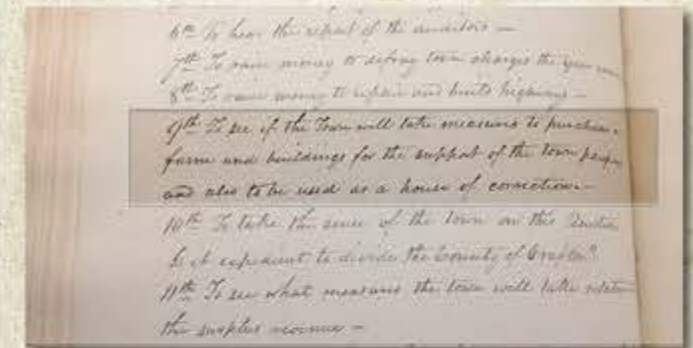 6th To hear the report of the auditors —
7th To raise money to defray town charges the
8th To raise money to repair and build highways —
9th To see if the Town will take measures to purchase
farm and buildings for the support of the town
and also to be used as a house of correction —
10th To take the sense of the town on this
Is it expedient to divide the County of Grafton?
11th To see what measures the town will take
the surplus revenue —